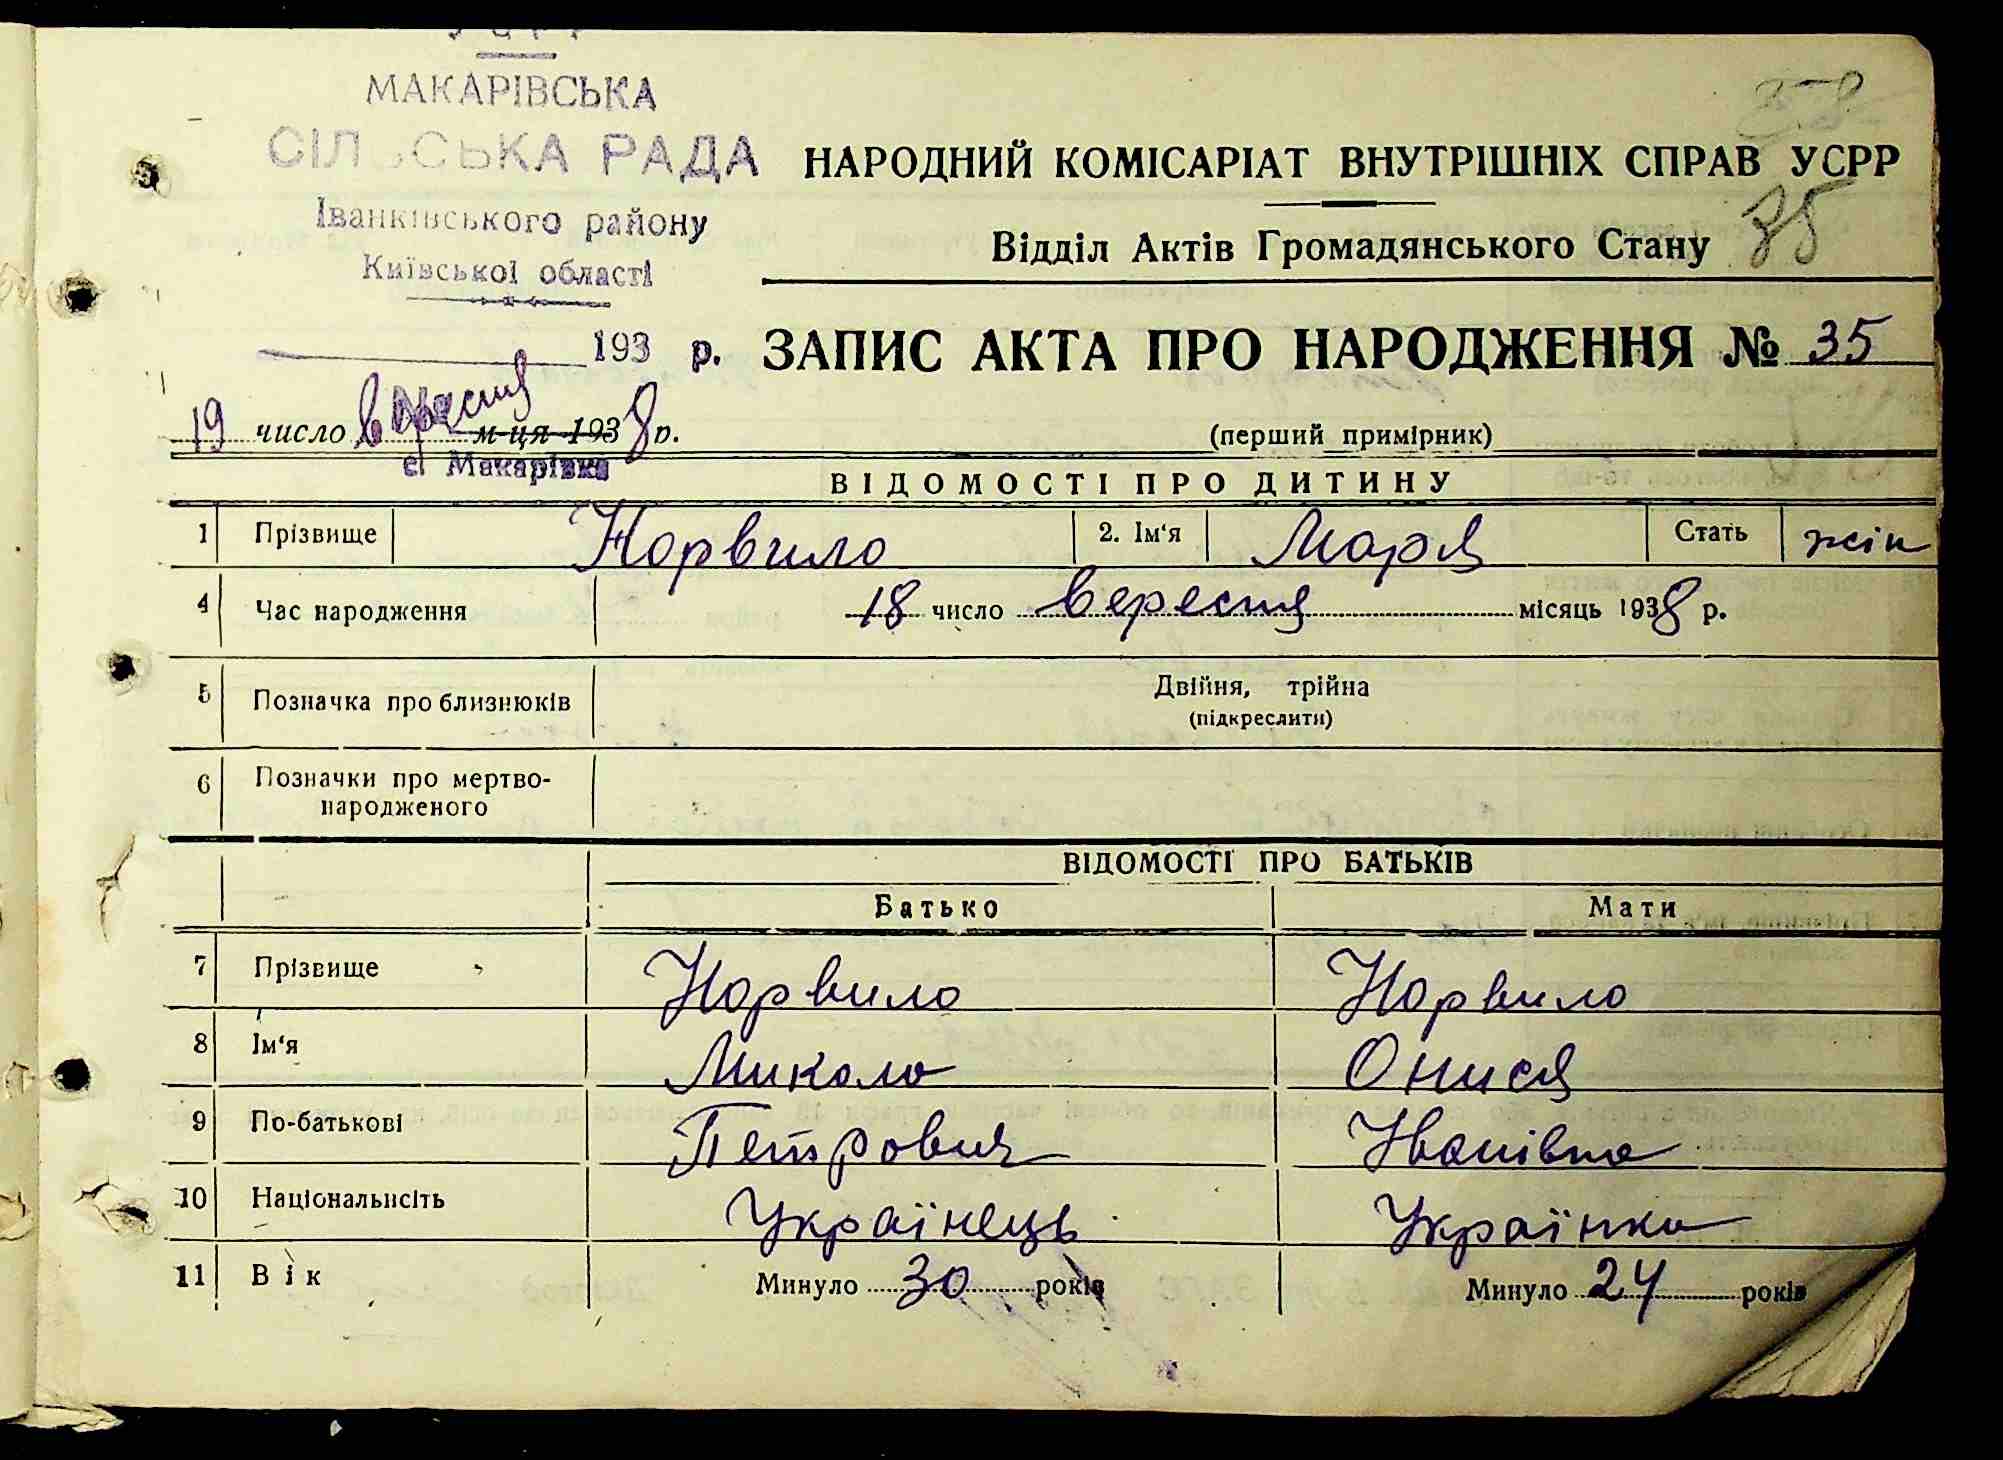 МАКАРІВСЬКА
СІЛЬСЬКА РАДА
Іванківського району
Київської області
193 р.
НАРОДНИЙ КОМІСАРІАТ ВНУТРІШНІХ СПРАВ УСРР
Відділ Актів Громадянського Стану
35
ЗАПИС АКТА ПРО НАРОДЖЕННЯ № 35
19 число вересня м-ця 1938 р.
(перший примірник)
с. Макарівка
ВІДОМОСТІ ПРО ДИТИНУ
1 Прізвище Норвило 2. Ім'я Марія Стать жін
4 Час народження 18 число вересня місяць 1938 р.
5 Позначка про близнюків Двійня, трійна
(підкреслити)
6 Позначки про мертво-
народженого
ВІДОМОСТІ ПРО БАТЬКІВ
Батько Мати
7 Прізвище Норвило Норвило
8 Ім'я Микола Онися
9 По-батькові Петрович Иванівна
10 Національність Українець Українка
11 Вік Минуло 30 років Минуло 24 років